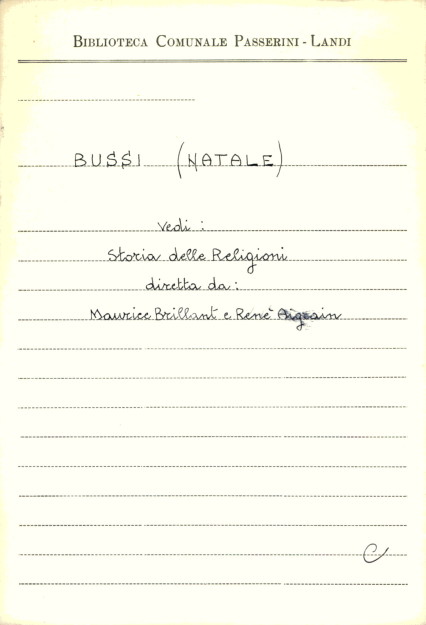 BIBLIOTECA COMUNALE PASSERINI - LANDI
BUSSI (NATALE)
Vedi :
Storia delle Religioni
diretta da :
Maurice Brillant e Renè Aigrain
C